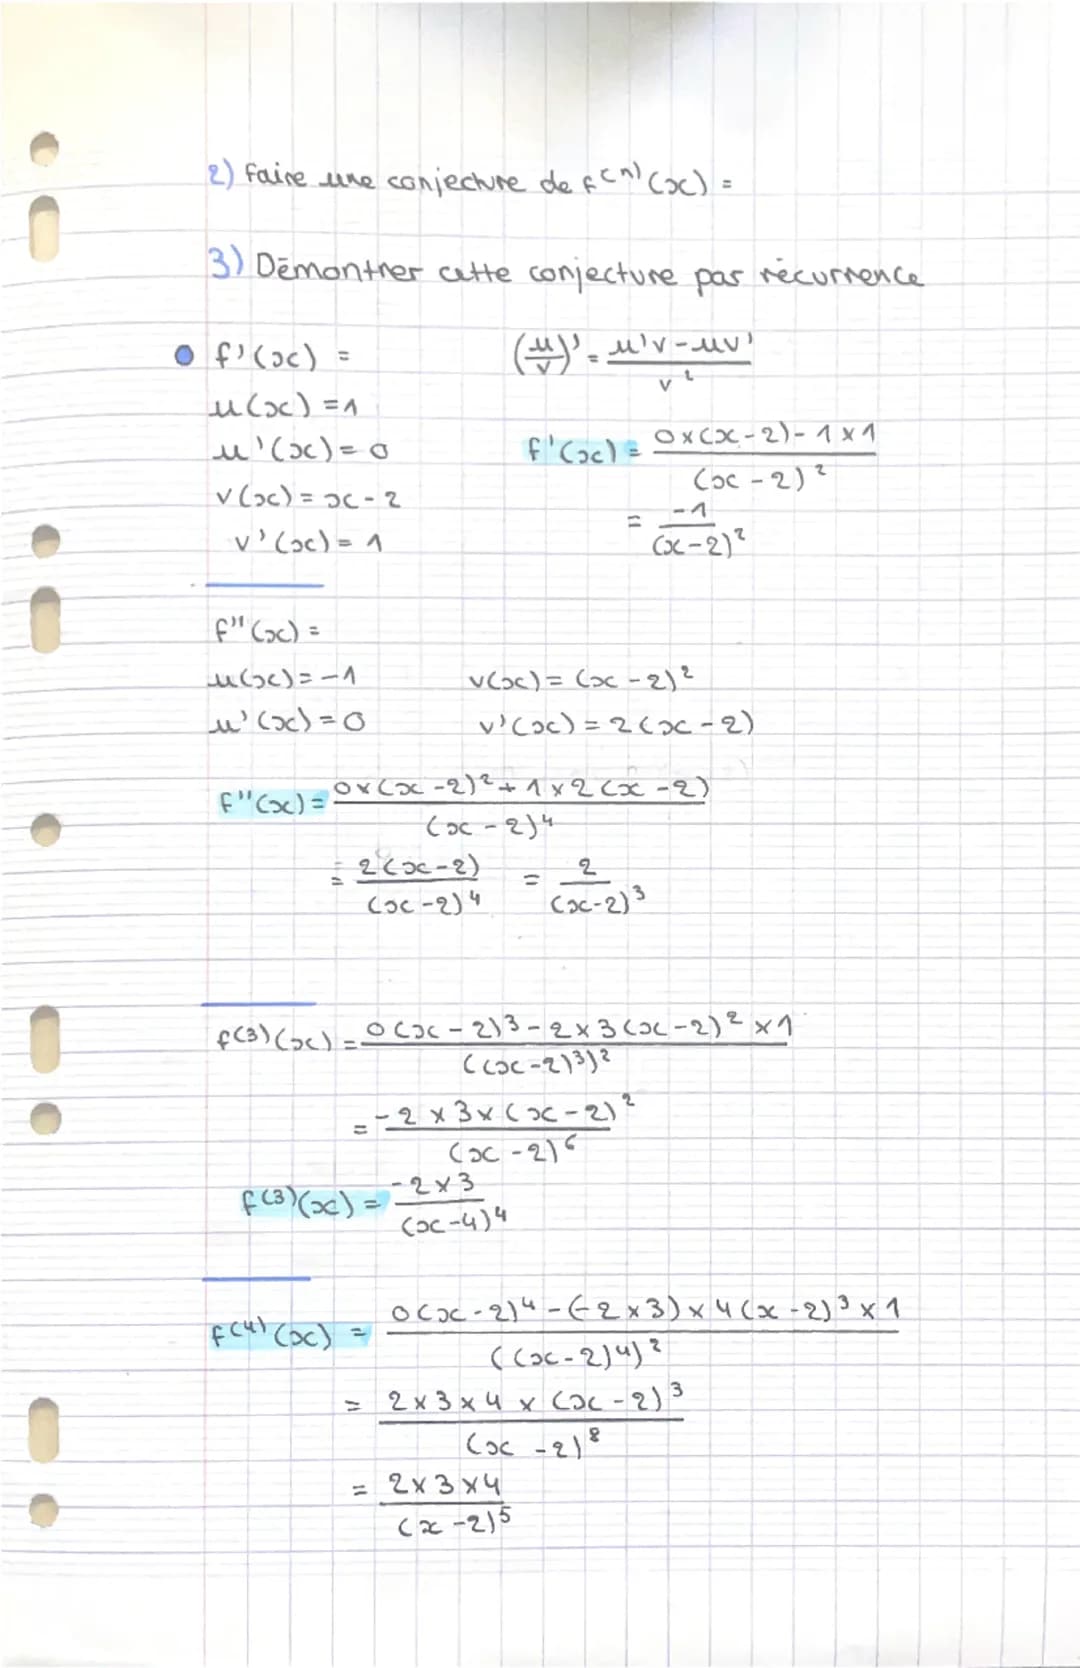 2) Faire une conjecture de f⁽ⁿ⁾(x) =
3) Démontrer cette conjecture par récurrence
f'(x) =
(u/v)' = (u'v - uv')/v²
u(x) = 1
u'(x) = 0
f'(x) = (0×(x-2) - 1×1)/(x-2)²
v(x) = x - 2
= -1/(x-2)²
v'(x) = 1
f''(x) =
u(x) = -1
v(x) = (x-2)²
u'(x) = 0
v'(x) = 2(x-2)
f''(x) = (0×(x-2)² + 1×2(x-2))/(x-2)⁴
= 2(x-2)/(x-2)⁴ = 2/(x-2)³
f⁽³⁾(x) = (0(x-2)³ - 2×3(x-2)²×1)/((x-2)³)²
= (-2×3×(x-2)²)/(x-2)⁶
f⁽³⁾(x) = (-2×3)/(x-4)⁴
f⁽⁴⁾(x) = (0(x-2)⁴ - (-2×3)×4(x-2)³×1)/((x-2)⁴)²
= (2×3×4×(x-2)³)/(x-2)⁸
= (2×3×4)/(x-2)⁵